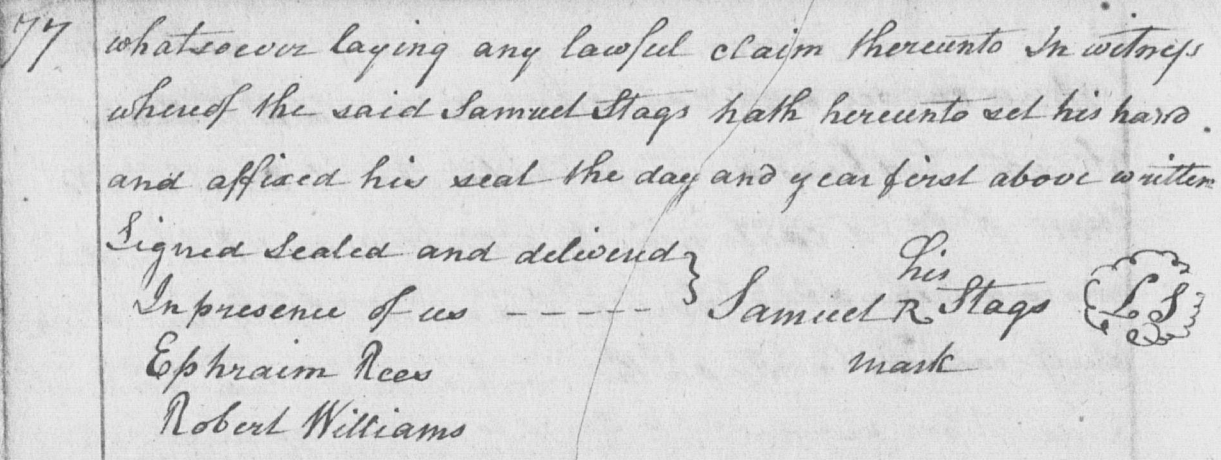 77
whatsoever laying any lawful claim thereunto In witness
whereof the said Samuel Stags hath hereunto set his hand
and affixed his seal the day and year first above written
Signed Sealed and delivered }
In presence of us - - - - -
his
Samuel R Stags L S
mark
Ephraim Rees
Robert Williams